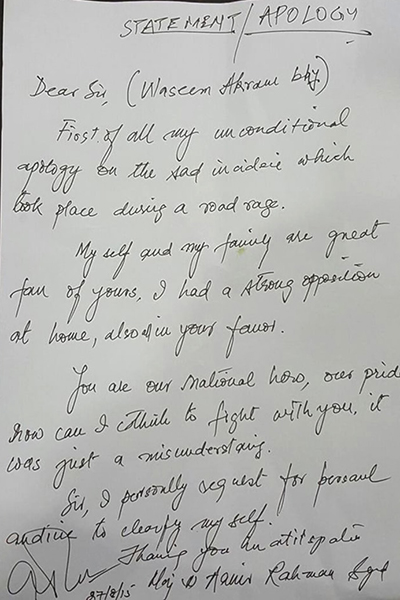 STATEMENT/APOLOGY
Dear Sir, (Waseem Akram bhj)
First of all my unconditional
apology on the sad incidein which
took place during a road rage.
My self and my family are great
fan of yours. I had a strong opposition
at home, also in your favor.
You are our national hero, our prid
how can I think to fight with you, it
was just a misunderstaing.
Sir, I personly request for persoul
audine to clearfy my self.
Thanking you in
27/8/15 Maj ® Aamir Rahman